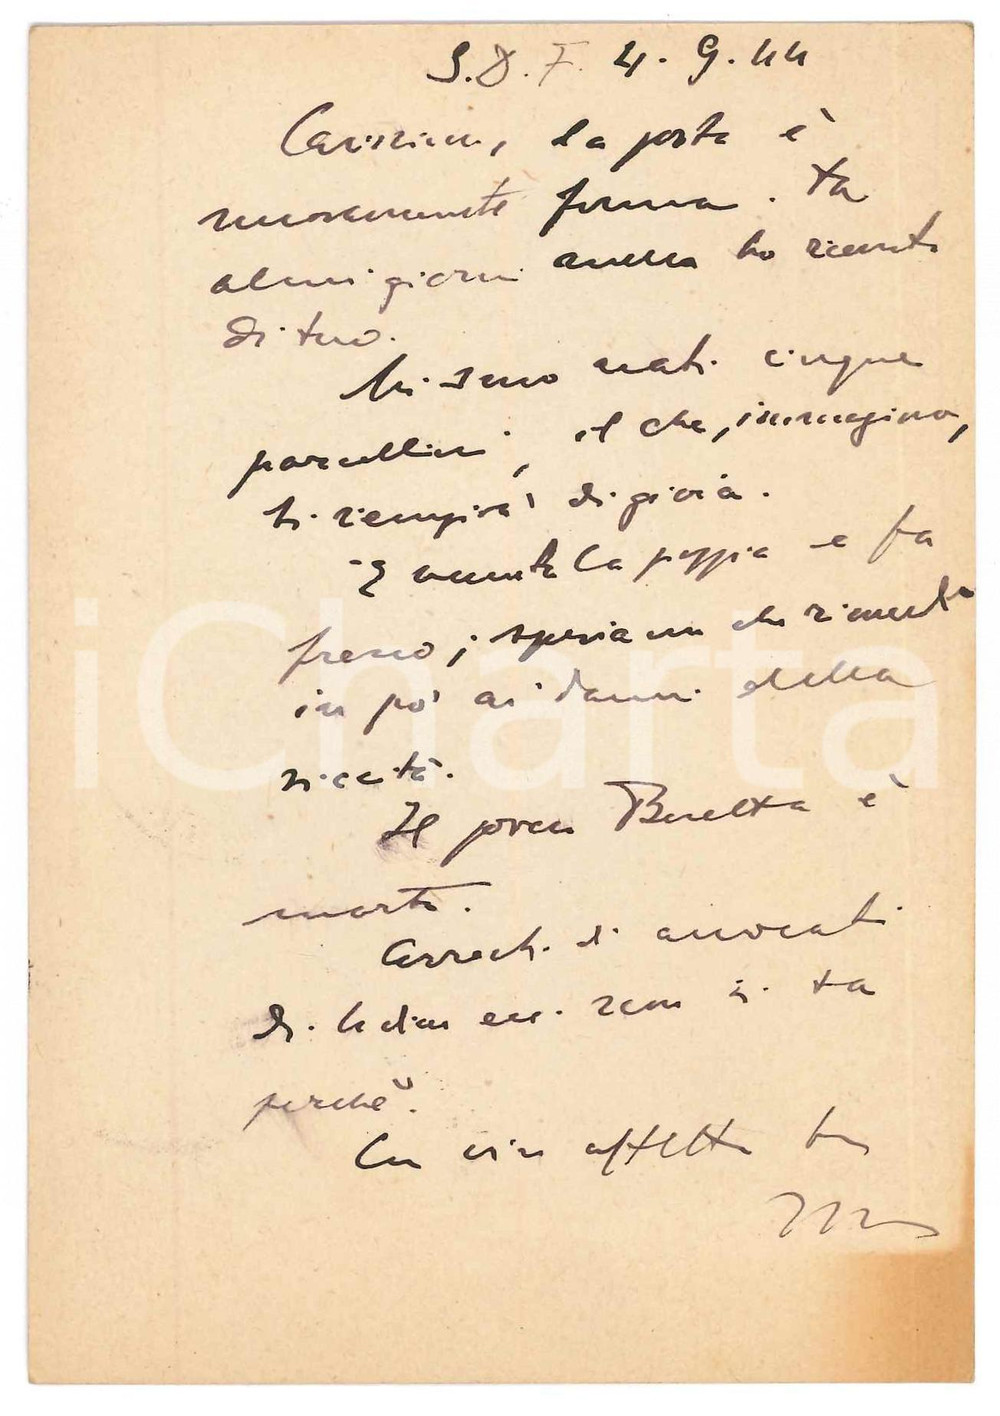 S.D.F. 4.9.44
Carissimo, la posta è
nuovamente ferma. Da
alcuni giorni nulla ho ricevuto
di tuo.
Mi sono nati cinque
porcellini, il che, immagino,
ti riempirà di gioia.
È venuta la pioggia e fa
fresco; speriamo che rimedi
un po' ai danni della
siccità.
Il povero Beretta è
morto.
di avvocati
di Udine ecc. non si sa
perchè.
Con vivo affetto tuo
iCharta